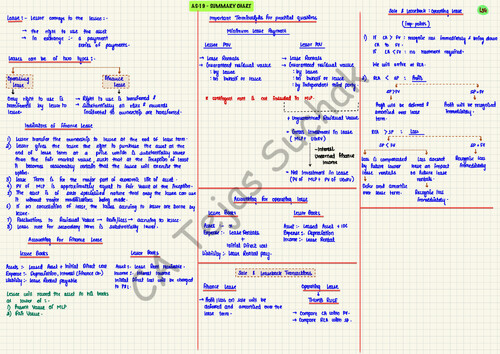 AS 19 - SUMMARY CHART
Lease :- Lessor conveys to the lessee :-
→ the right to use the asset
→ in exchange :- a payment
series of payments.
Leases can be of two types :-
Operating Lease
Finance Lease
Only right to use is transferred by lessor to lessee.
→ Right to use is transferred &
→ Substantially all risks & rewards incidental to ownership are transferred.
Indicators of Finance Lease
1) Lessor transfers the ownership to lessee at the end of lease term.
2) Lessor gives the lessee the right to purchase the asset at the
end of lease term at a price which is substantially lower
than the fair market value, such that at the inception of lease
it becomes reasonably certain that the lessee will exercise the
option.
3) Lease Term is for the major part of economic life of asset.
4) PV of MLP is approximately equal to fair value at the inception.
5) The asset is of such specialised nature that only the lessee can use
it without major modifications being made.
6) If on cancellation of lease, the losses accruing to lessor are borne by
lessee.
7) Fluctuations in Residual Value → Profit/loss → accruing to lessee.
8) Lease rent for secondary term is substantially lower.
Accounting for Finance Lease
Lessee Books
Asset :- Leased Asset + Initial Direct Cost
Expense :- Depreciation, Interest (Finance Ch)
Liability :- Lease Rental payable.
Lessor Books
Asset :- Lease Rent Receivable.
Income :- Interest Income
Initial Direct Cost will be charged to P&L.
Lessee will record the asset in his books
at lower of :-
1) Present Value of MLP
2) Fair Value.
Important Terminologies for practical questions
Minimum Lease Payment
Lessee POV
→ Lease Rentals
→ Guaranteed residual value
: by lessee
: on behalf of lessee
Lessor POV
→ Lease Rentals
→ Guaranteed Residual value
: by lessee
: on behalf of lessee
: by Independent third party
* Contingent rent is not included in MLP
+ Unguaranteed Residual Value
→ Gross Investment in lease
(MLP + UGRV)
- Interest
Unearned finance
income
→ Net Investment in Lease
(PV of MLP + PV of UGRV)
Accounting for operating lease
Lessee Books
Asset :- X
Expense :- Lease Rentals
+
Initial Direct Cost
Liability :- Lease Rental pay.
Lessor Books
Asset :- Leased Asset + IDC
Expense :- Depreciation
Income :- Lease Rental
Sale & Leaseback Transactions
Finance Lease
→ Profit/loss on sale will be
deferred and amortised over the
lease term.
Operating Lease
Thumb Rule
→ Compare CA with FV.
→ Compare RCA with SP.
Sale & Leaseback : Operating Lease
(Imp. points)
1) If CA > FV : recognise loss immediately & bring down
CA to FV.
If CA < FV : no treatment required.
We will arrive at RCA.
2) RCA < SP : Profit
SP > FV
SP < FV
Profit will be deferred &
amortised over lease
term.
Profit will be recognised
immediately.
RCA > SP : Loss
SP < FV
SP > FV
Loss is compensated
by future lower
lease rentals
Loss doesnt
have an impact
on future lease
rentals
Recognise loss
immediately.
Defer and amortise
over lease term.
Recognise loss
immediately.
CA Tejas Suchak